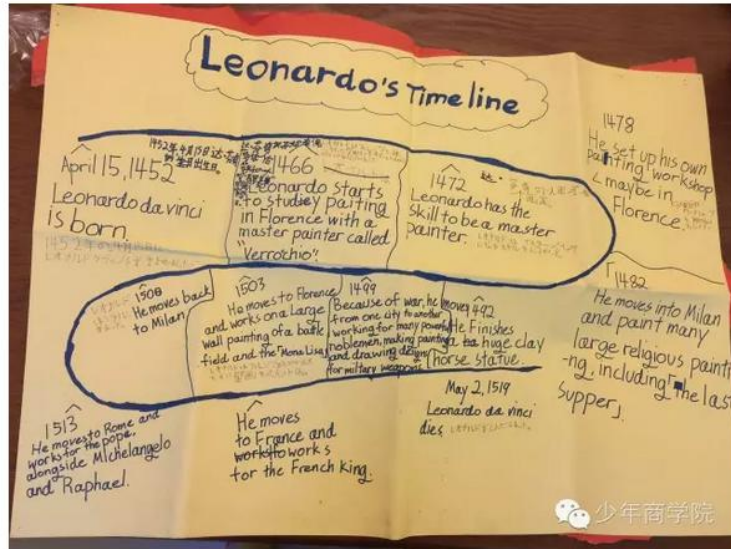 Leonardo's Timeline
April 15, 1452
Leonardo da vinci
is born.
1466
Leonardo starts
to studiey paiting
in Florence with a
master painter called
"Verrochio".
1472
Leonardo has the
skill to be a master
painter.
1478
He set up his own
painting workshop
maybe in
Florence.
1482
He moves into Milan
and paint many
large religious painti
-ng, including「the last
supper」.
1492
He Finishes
a huge clay
horse statue.
1499
Because of war, he moves
from one city to another
working for many powerful
noblemen, making painting
and drawing designs
for miltary weapons
1503
He moves to Florence
and works on a Large
wall painting of a battle
field and the "Mona Lisa"
1508
He moves back
to Milan
1513
He moves to Rome and
works for the pope,
alongside Michelangelo
and Raphael.
He moves
to France and
works
for the French king.
May 2, 1519
Leonardo da vinci
dies.
少年商学院